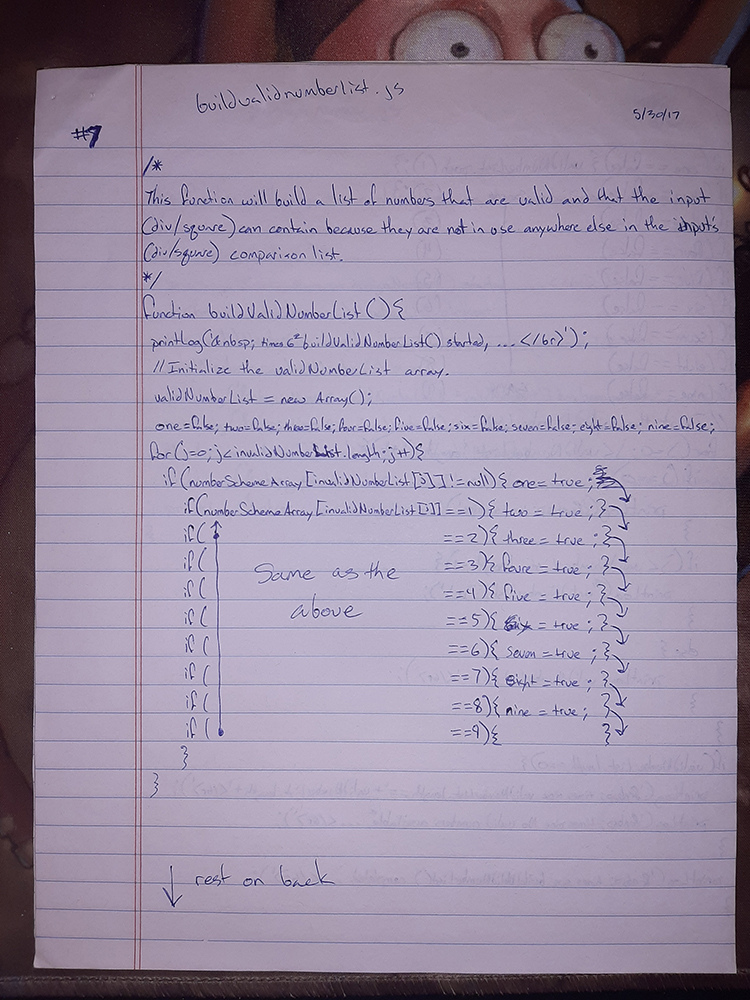 buildvalidnumberlist.js
5/30/17
#9
/*
This function will build a list of numbers that are valid and that the input
(div/square) can contain because they are not in use anywhere else in the input's
(div/square) comparison list.
*/
function buildValidNumberList(){
printLog('&nbsp; times 6² buildValidNumberList() started, ... </br>');
// Initialize the validNumberList array.
validNumberList = new Array();
one=false; two=false; three=false; four=false; five=false; six=false; seven=false; eight=false; nine=false;
for(j=0; j<invalidNumberList.length; j++){
if(numberSchemeArray[invalidNumberList[j]] !=null){ one=true;
if(numberSchemeArray[invalidNumberList[j]] ==1){ two=true; }
if( ==2){ three=true; }
if( ==3){ foure=true; }
if( Same as the ==4){ five=true; }
if( above ==5){ six=true; }
if( ==6){ seven=true; }
if( ==7){ eight=true; }
if( ==8){ nine=true; }
if( ==9){ }
}
}
↓ rest on back